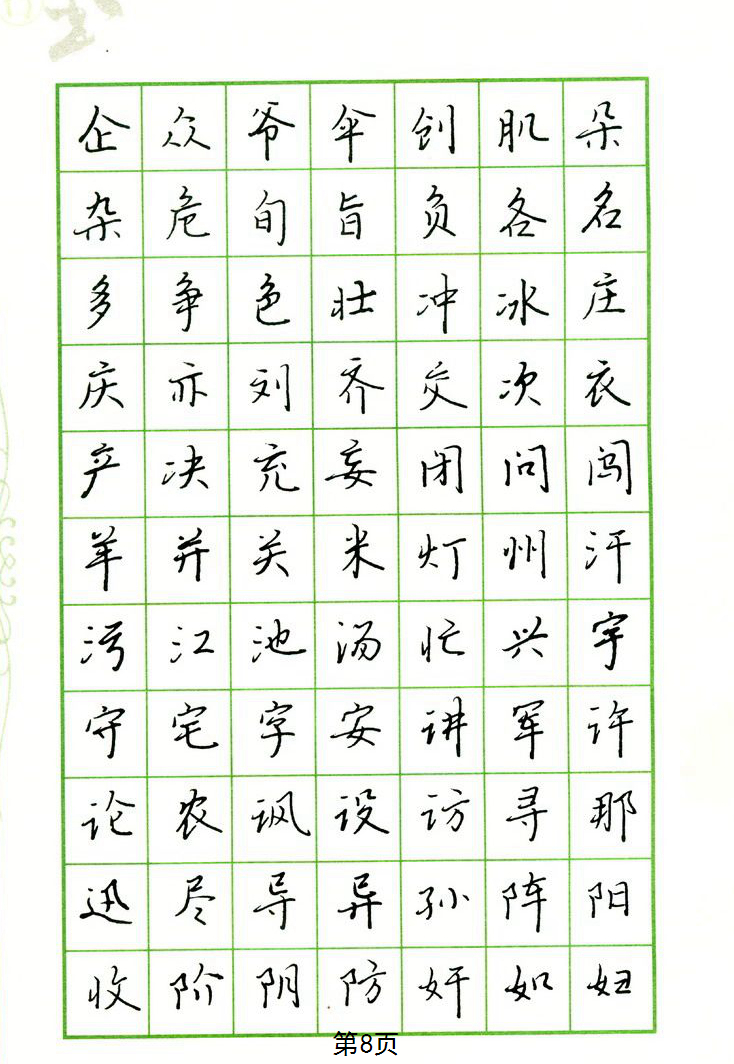 企众爷伞创肌朵
杂危旬旨负各名
多争色壮冲冰庄
庆亦刘齐交次衣
产决充妄闭问闯
羊并关米灯州汗
污江池汤忙兴宇
守宅字安讲军许
论农讽设访寻那
迅尽导异孙阵阳
收阶阴防奸如妇
第8页